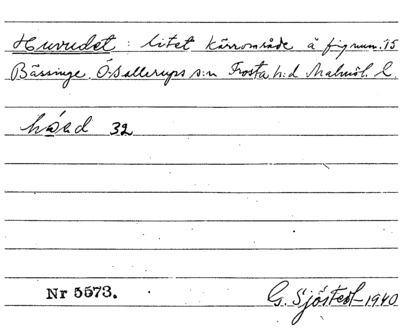 Huvudet: litet kärrområde å fignum. 75
Bässinge. Ö. Sallerups s:n Frosta h:d Malmöh. l.
32
Nr 5573. G. Sjöstedt 1940